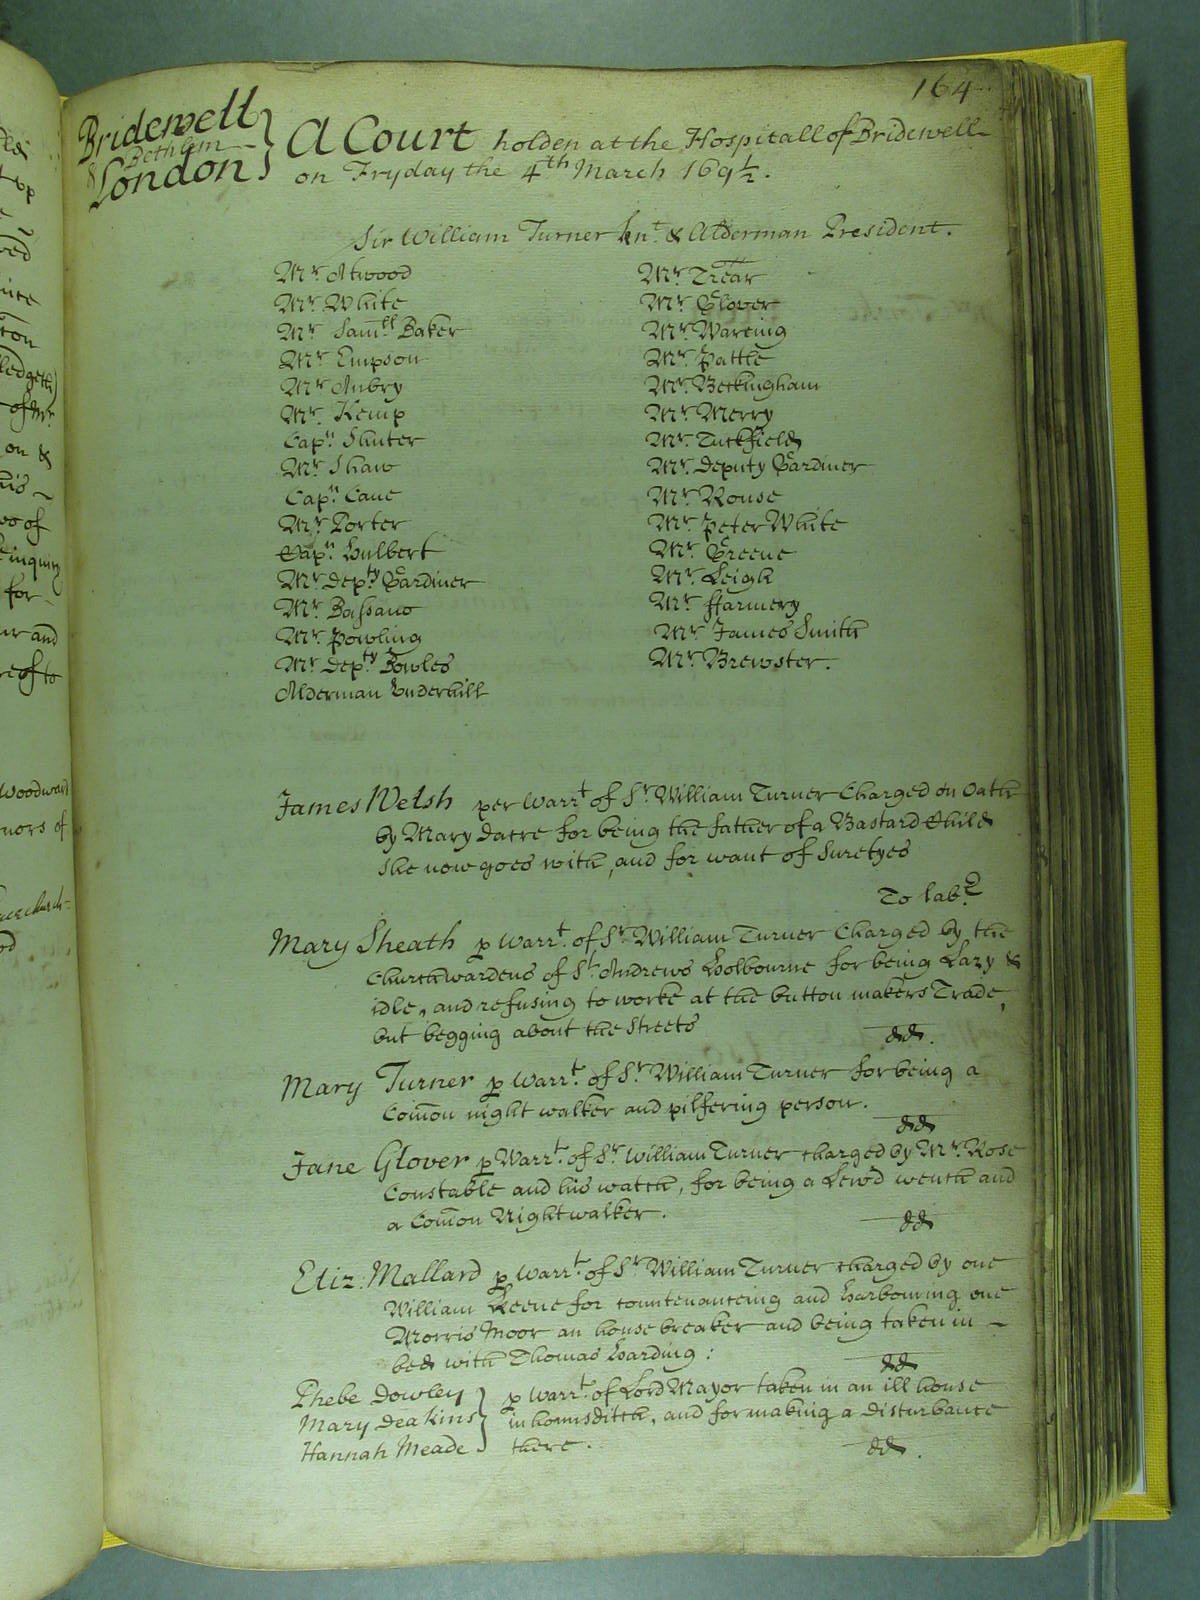 164
Bridewell
& Bethlem
London
A Court holden at the Hospitall of Bridewell
on Fryday the 4th March 169½.
Sir William Turner Knt. & Alderman President.
Mr. Atwood
Mr. White
Mr. Samll Baker
Mr. Empson
Mr. Aubry
Mr. Kemp
Capn. Shuter
Mr. Shaw
Capn. Cane
Mr. Porter
Capn. Hulbert
Mr. Depty Gardiner
Mr. Bassano
Mr. Powling
Mr. Depty Bowles
Alderman Underhill
Mr. Trear
Mr. Glover
Mr. Wareing
Mr. Pattle
Mr. Beckingham
Mr. Merry
Mr. Tuckfield
Mr. Deputy Gardiner
Mr. Rouse
Mr. Peter White
Mr. Greene
Mr. Leigh
Mr. ffarmery
Mr. James Smith
Mr. Brewster.
James Welsh per Warrt of Sr. William Turner Charged on Oath
by Mary Dacre for being the father of a Bastard Child
She now goes with, and for want of Suretyes
To labr.
Mary Sheath p Warrt. of Sr. William Turner Charged by the
Churchwardens of St. Andrews Holbourne for being Lazy &
idle, and refusing to worke at the button makers Trade,
but begging about the Streets
dd.
Mary Turner p Warrt. of Sr. William Turner for being a
Com̄on night walker and pilfering person.
dd
Jane Glover p Warrt. of Sr. William Turner charged by Mr. Rose
Constable and his watch, for being a Lewd wench and
a Com̄on Nightwalker.
dd
Eliz: Mallard p Warrt. of Sr. William Turner charged by one
William Keene for countenanceing and harbouring one
Morris Moor an house breaker and being taken in
bed with Thomas Harding:
dd
Phebe Dowley
Mary Deakins
Hannah Meade
p Warrt. of Lord Mayor taken in an ill house
in hounsditch, and for making a disturbance
there.
dd.